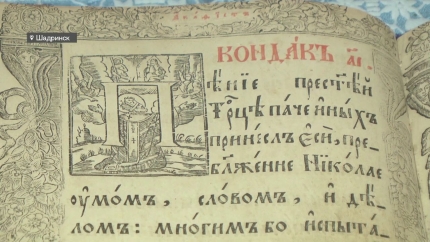 Шадринск
КОНДАКЪ аі
Пѣніе прест҃ѣй
Трⷪ҇цѣ паче и҆ныхъ
принеслъ є҆сѝ, пре_
бл҃женне Нїколае
оумомъ, словомъ, и дѣ_
ломъ: многимъ бо испыта_